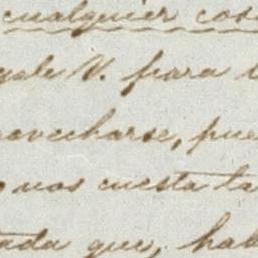 cualquier cos
gale V. para
ovecharse, pue
nos cuesta ta
ada que, hab